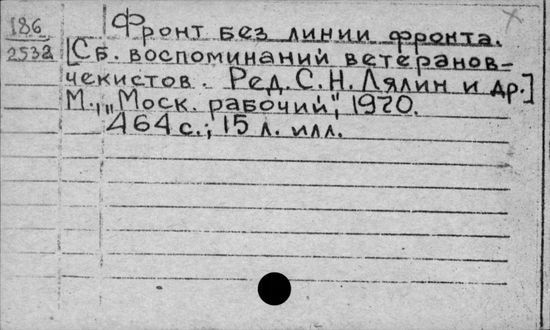 186
2532
Фронт без линии фронта.
[Сб. воспоминаний ветеранов-
чекистов. Ред. С. Н. Лялин и др.]
М., "Моск. рабочий", 1970.
464 с.; 15 л. илл.